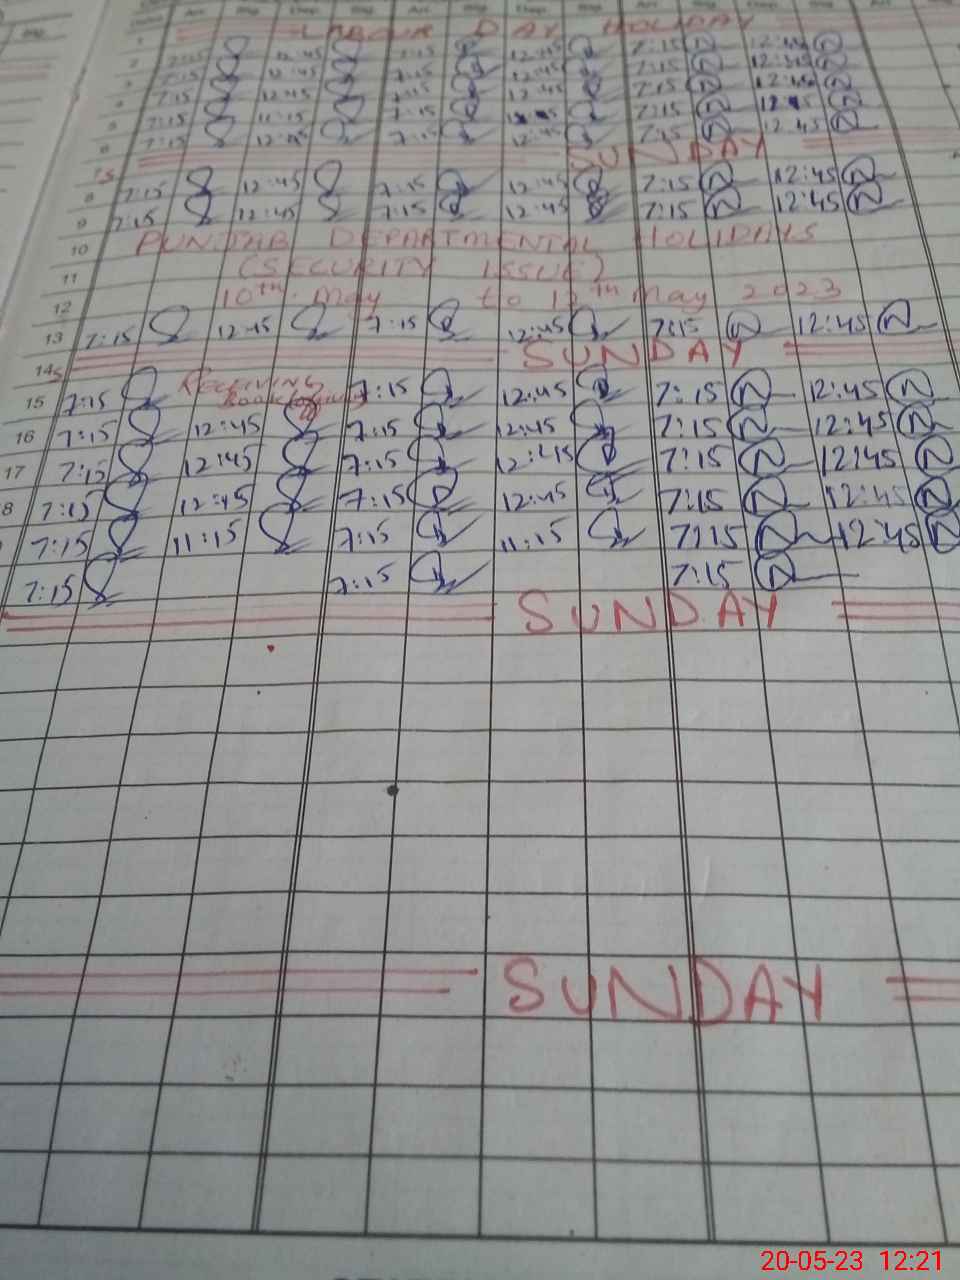 Arr. Sig. Dep. Sig. Arr. Sig. Dep. Sig. Arr. Sig. Dep. Sig. Arr.
1 LABOUR DAY HOLIDAY
2 7:15 12:45 7:15 12:45 7:15 12:45
3 7:15 12:45 7:15 12:45 7:15 12:45
4 7:15 12:45 7:15 12:45 7:15 12:45
5 7:15 11:15 7:15 7:15 12:45
6 7:15 12:45 7:15 12:45 7:15 12:45
7 S SUNDAY
8 7:15 12:45 7:15 12:45 7:15 12:45
9 7:15 12:45 7:15 12:45 7:15 12:45
10 PUNJAB DEPARTMENTAL HOLIDAYS
11 (SECURITY ISSUE)
12 10th May to 12th May 2023
13 7:15 12:45 7:15 12:45 7:15 12:45
14 S SUNDAY
15 7:15 Receiving 7:15 12:45 7:15 12:45
16 7:15 12:45 7:15 12:45 7:15 12:45
17 7:15 12:45 7:15 12:45 7:15 12:45
8 7:15 12:45 7:15 12:45 7:15 12:45
7:15 11:15 7:15 11:15 7:15 12:45
7:15 7:15 7:15
SUNDAY
SUNDAY
20-05-23 12:21